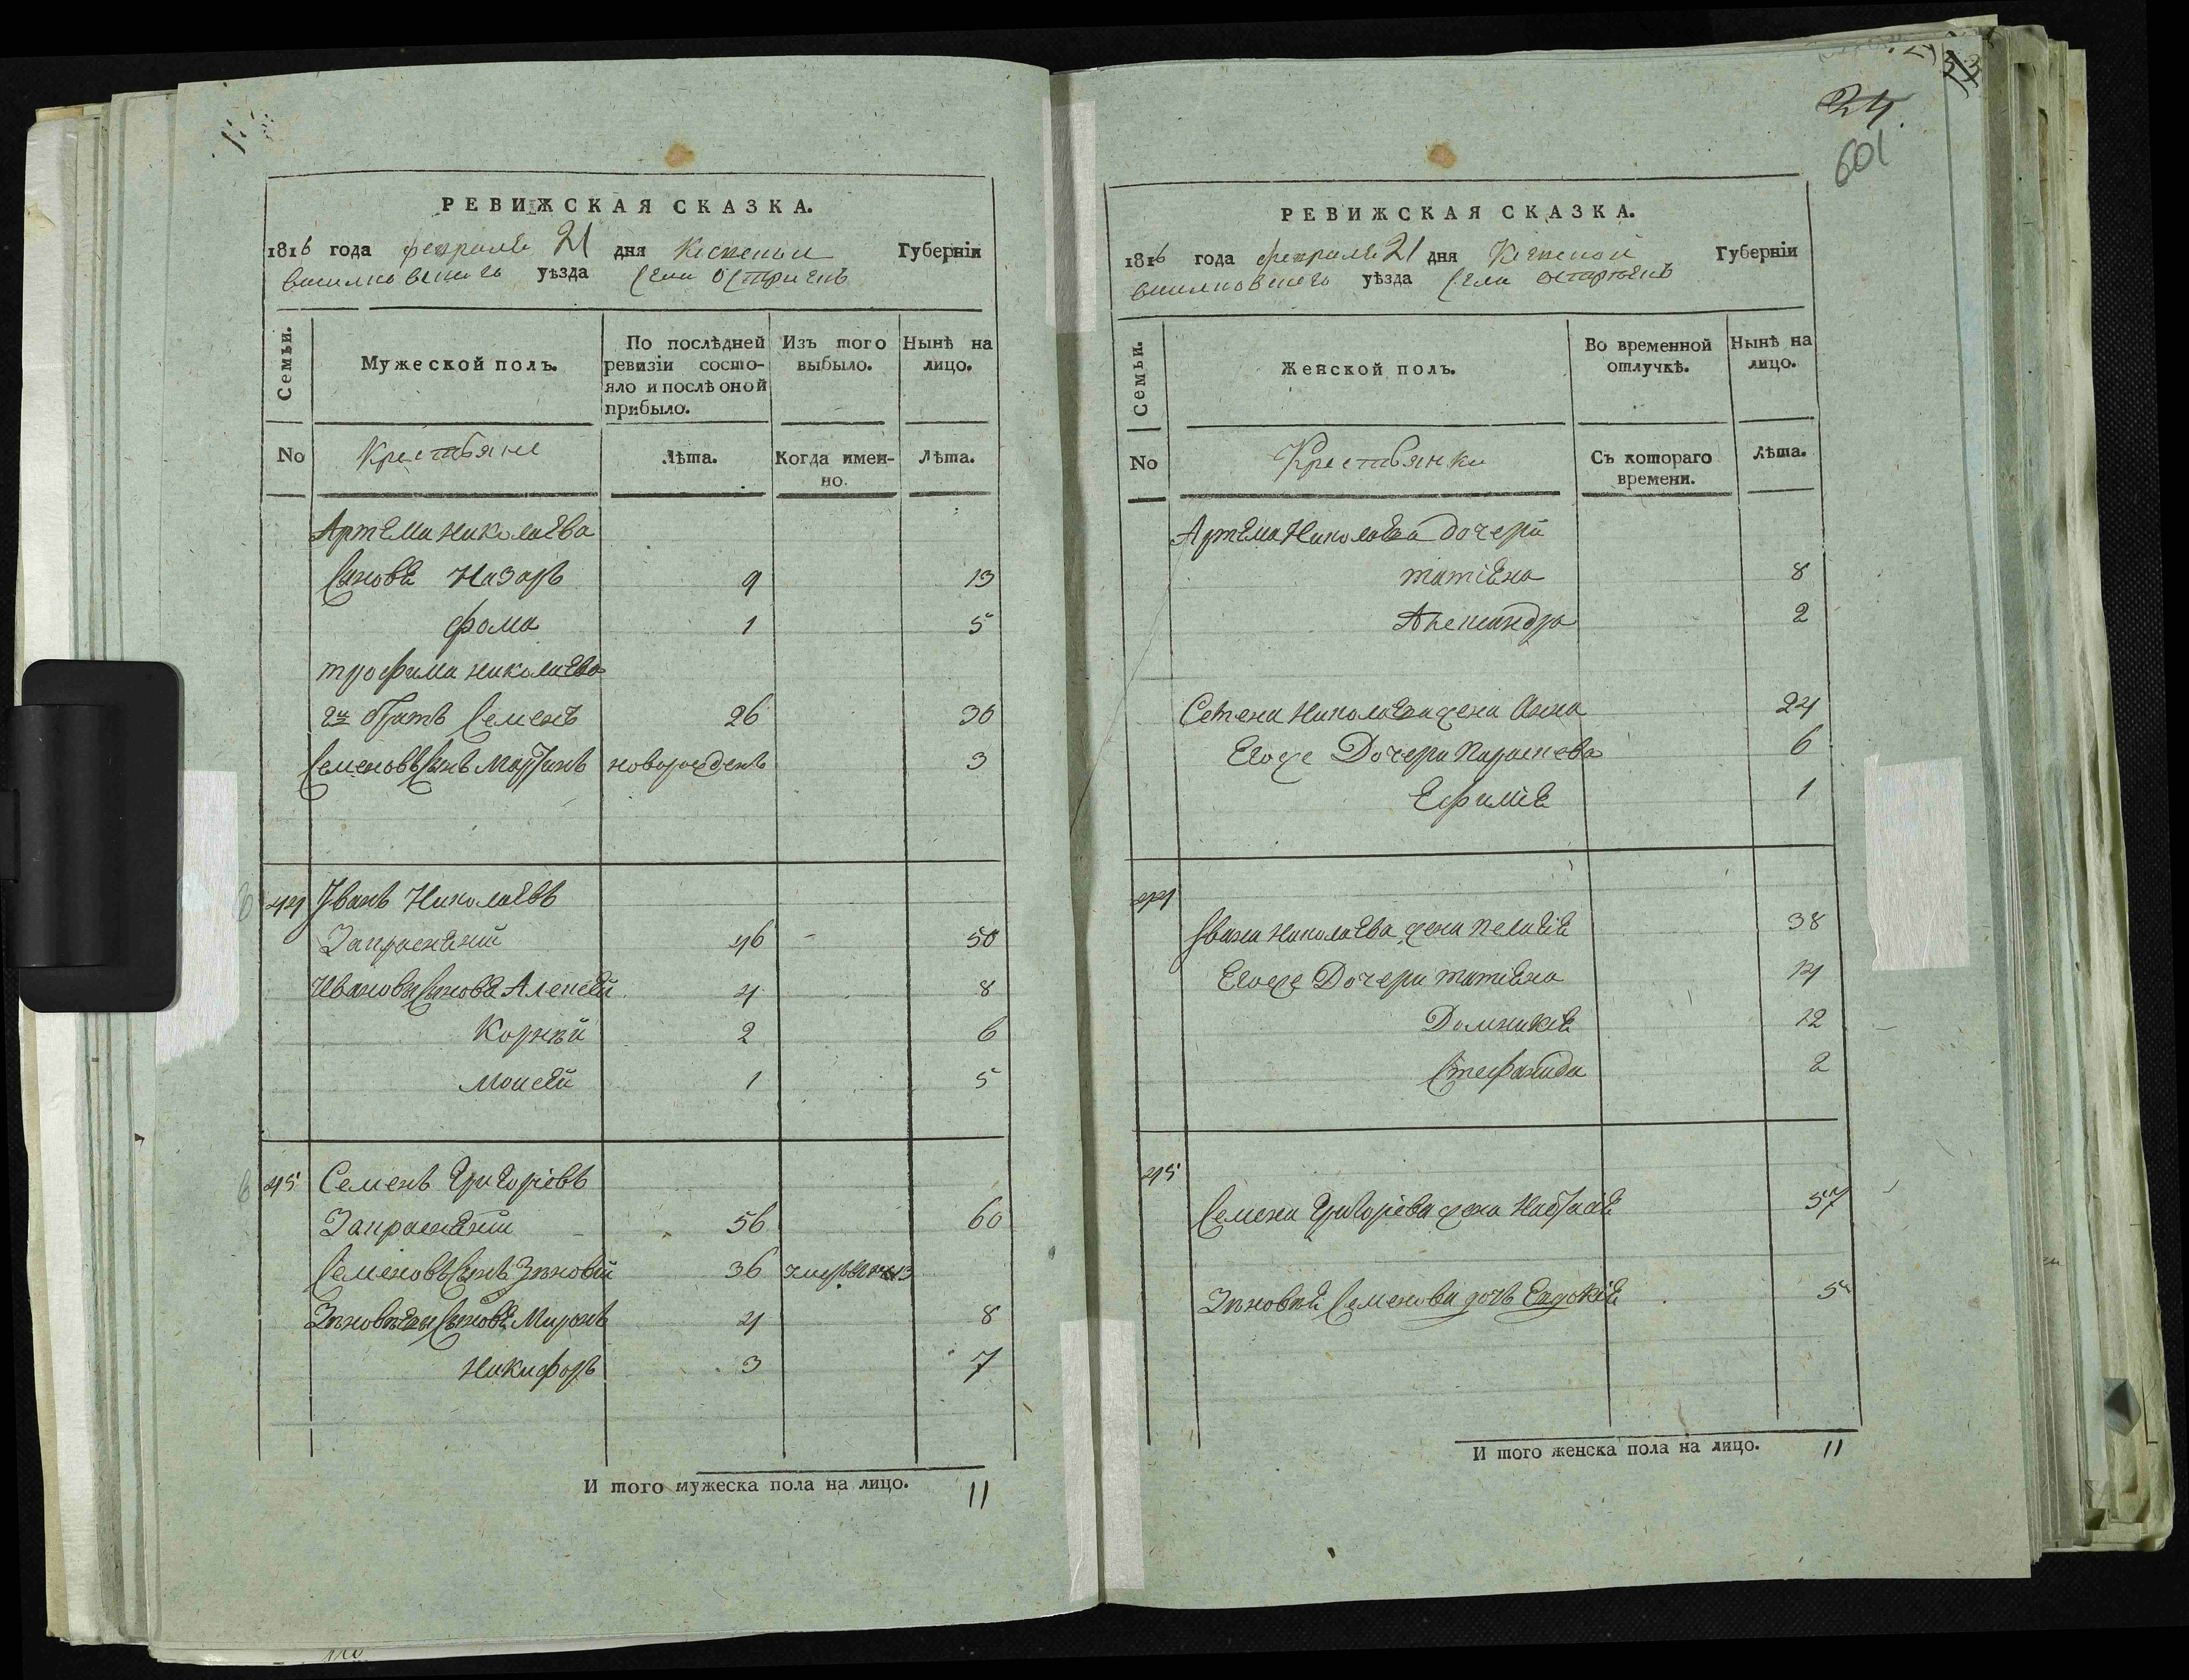 РЕВИЖСКАЯ СКАЗКА.
1816 года февраля 21 дня Киевской Губернiи
василковского уѣзда села
Семьи.
Мужеской полъ.
По послѣдней ревизiи состояло и послѣ оной прибыло.
Изъ того выбыло.
Нынѣ на лицо.
No Крестьяне Лѣта. Когда именно. Лѣта.
Артема николаева
Сыновѣ Назаръ 9 13
фома 1 5
трофима николаева
2й братъ Семенъ 26 30
Семеновъ сынъ новорожденъ 3
44 Иванъ Николаевъ
46 50
Ивановы сыновѣ Алексѣй 4 8
Корнѣй 2 6
Моисей 1 5
45 Семенъ Григорiевъ
56 60
Семеновъ сынъ Зѣновiй 36
сыновѣ Миронъ 4 8
Никифоръ 3 7
И того мужеска пола на лицо. 11
24
601
РЕВИЖСКАЯ СКАЗКА.
1816 года февраля 21 дня Киевской Губернiи
василковского уѣзда села
Семьи.
Женской полъ.
Во временной отлучкѣ.
Нынѣ на лицо.
No Крестьянки Съ котораго времени. Лѣта.
Артема Николаева дочери
татiяна 8
Александра 2
Семена Николаева жена Анна 24
Егоже Дочери Параскева 6
Ефимiя 1
44
Ивана Николаева жена Пелагiя 38
Егоже Дочери татiяна 14
Домникiя 12
Стефанида 2
45
Семена Григорiева жена Настасiя 57
Зѣновiя Семенова дочь Евдокiя 5
И того женска пола на лицо. 11